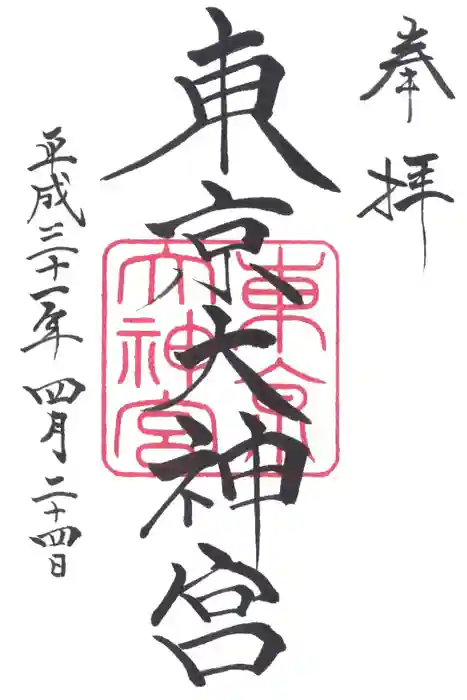 奉拝
東京大神宮
東京
大神宮
平成三十一年四月二十四日